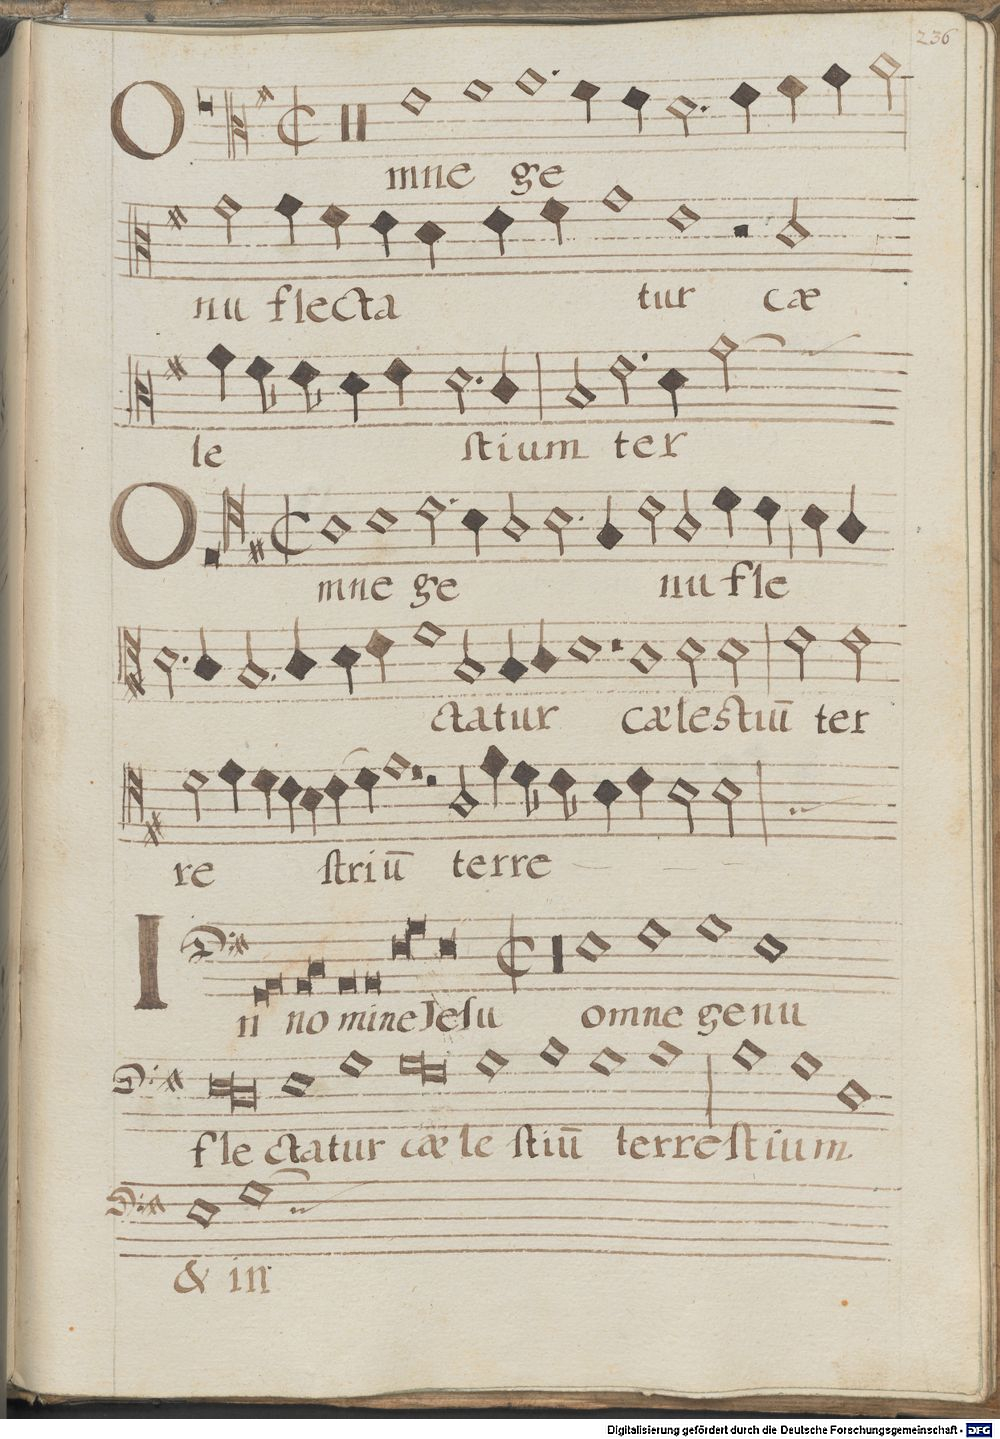 236
O mne ge
nu flecta tur cæ
le stium ter
O mne ge nu fle
ctatur cælestiū ter
re striū terre
I n no mine Jesu omne genu
fle ctatur cæ le stiū terrestium
& in
Digitalisierung gefördert durch die Deutsche Forschungsgemeinschaft - DFG